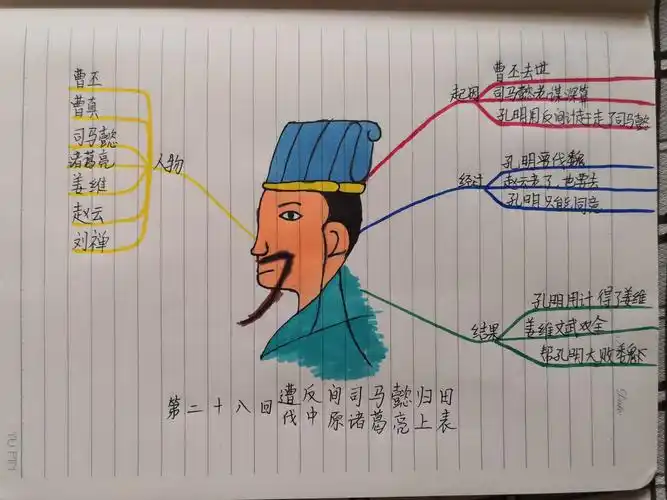 人物
曹丕
曹真
司马懿
诸葛亮
姜维
赵云
刘禅
起因
曹丕去世
司马懿老谋深算
孔明用反间计赶走了司马懿
经过
孔明要伐魏
赵云老了,也要去
孔明只能同意
结果
孔明用计得了姜维
姜维文武双全
帮孔明大败
第二十八回
遭反间司马懿归田
伐中原诸葛亮上表